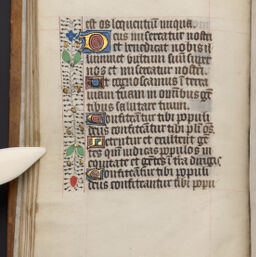 est os loquentiū iniqua.
Deus misereatur nostri
et benedicat nobis il
luminet vultum suū super
nos et misereatur nostri.
Ut cognoscamus ī terra
viam tuam in omībus gē
tibus salutare tuum.
Confiteātur tibi populi
deus confiteātur tibi pli oēs.
Letentur et exultent gē
tes qm̄ iudicas populos in
equitate et gētes ī tra dirigis.
Confiteātur tibi populi
deus confiteantur tibi populi